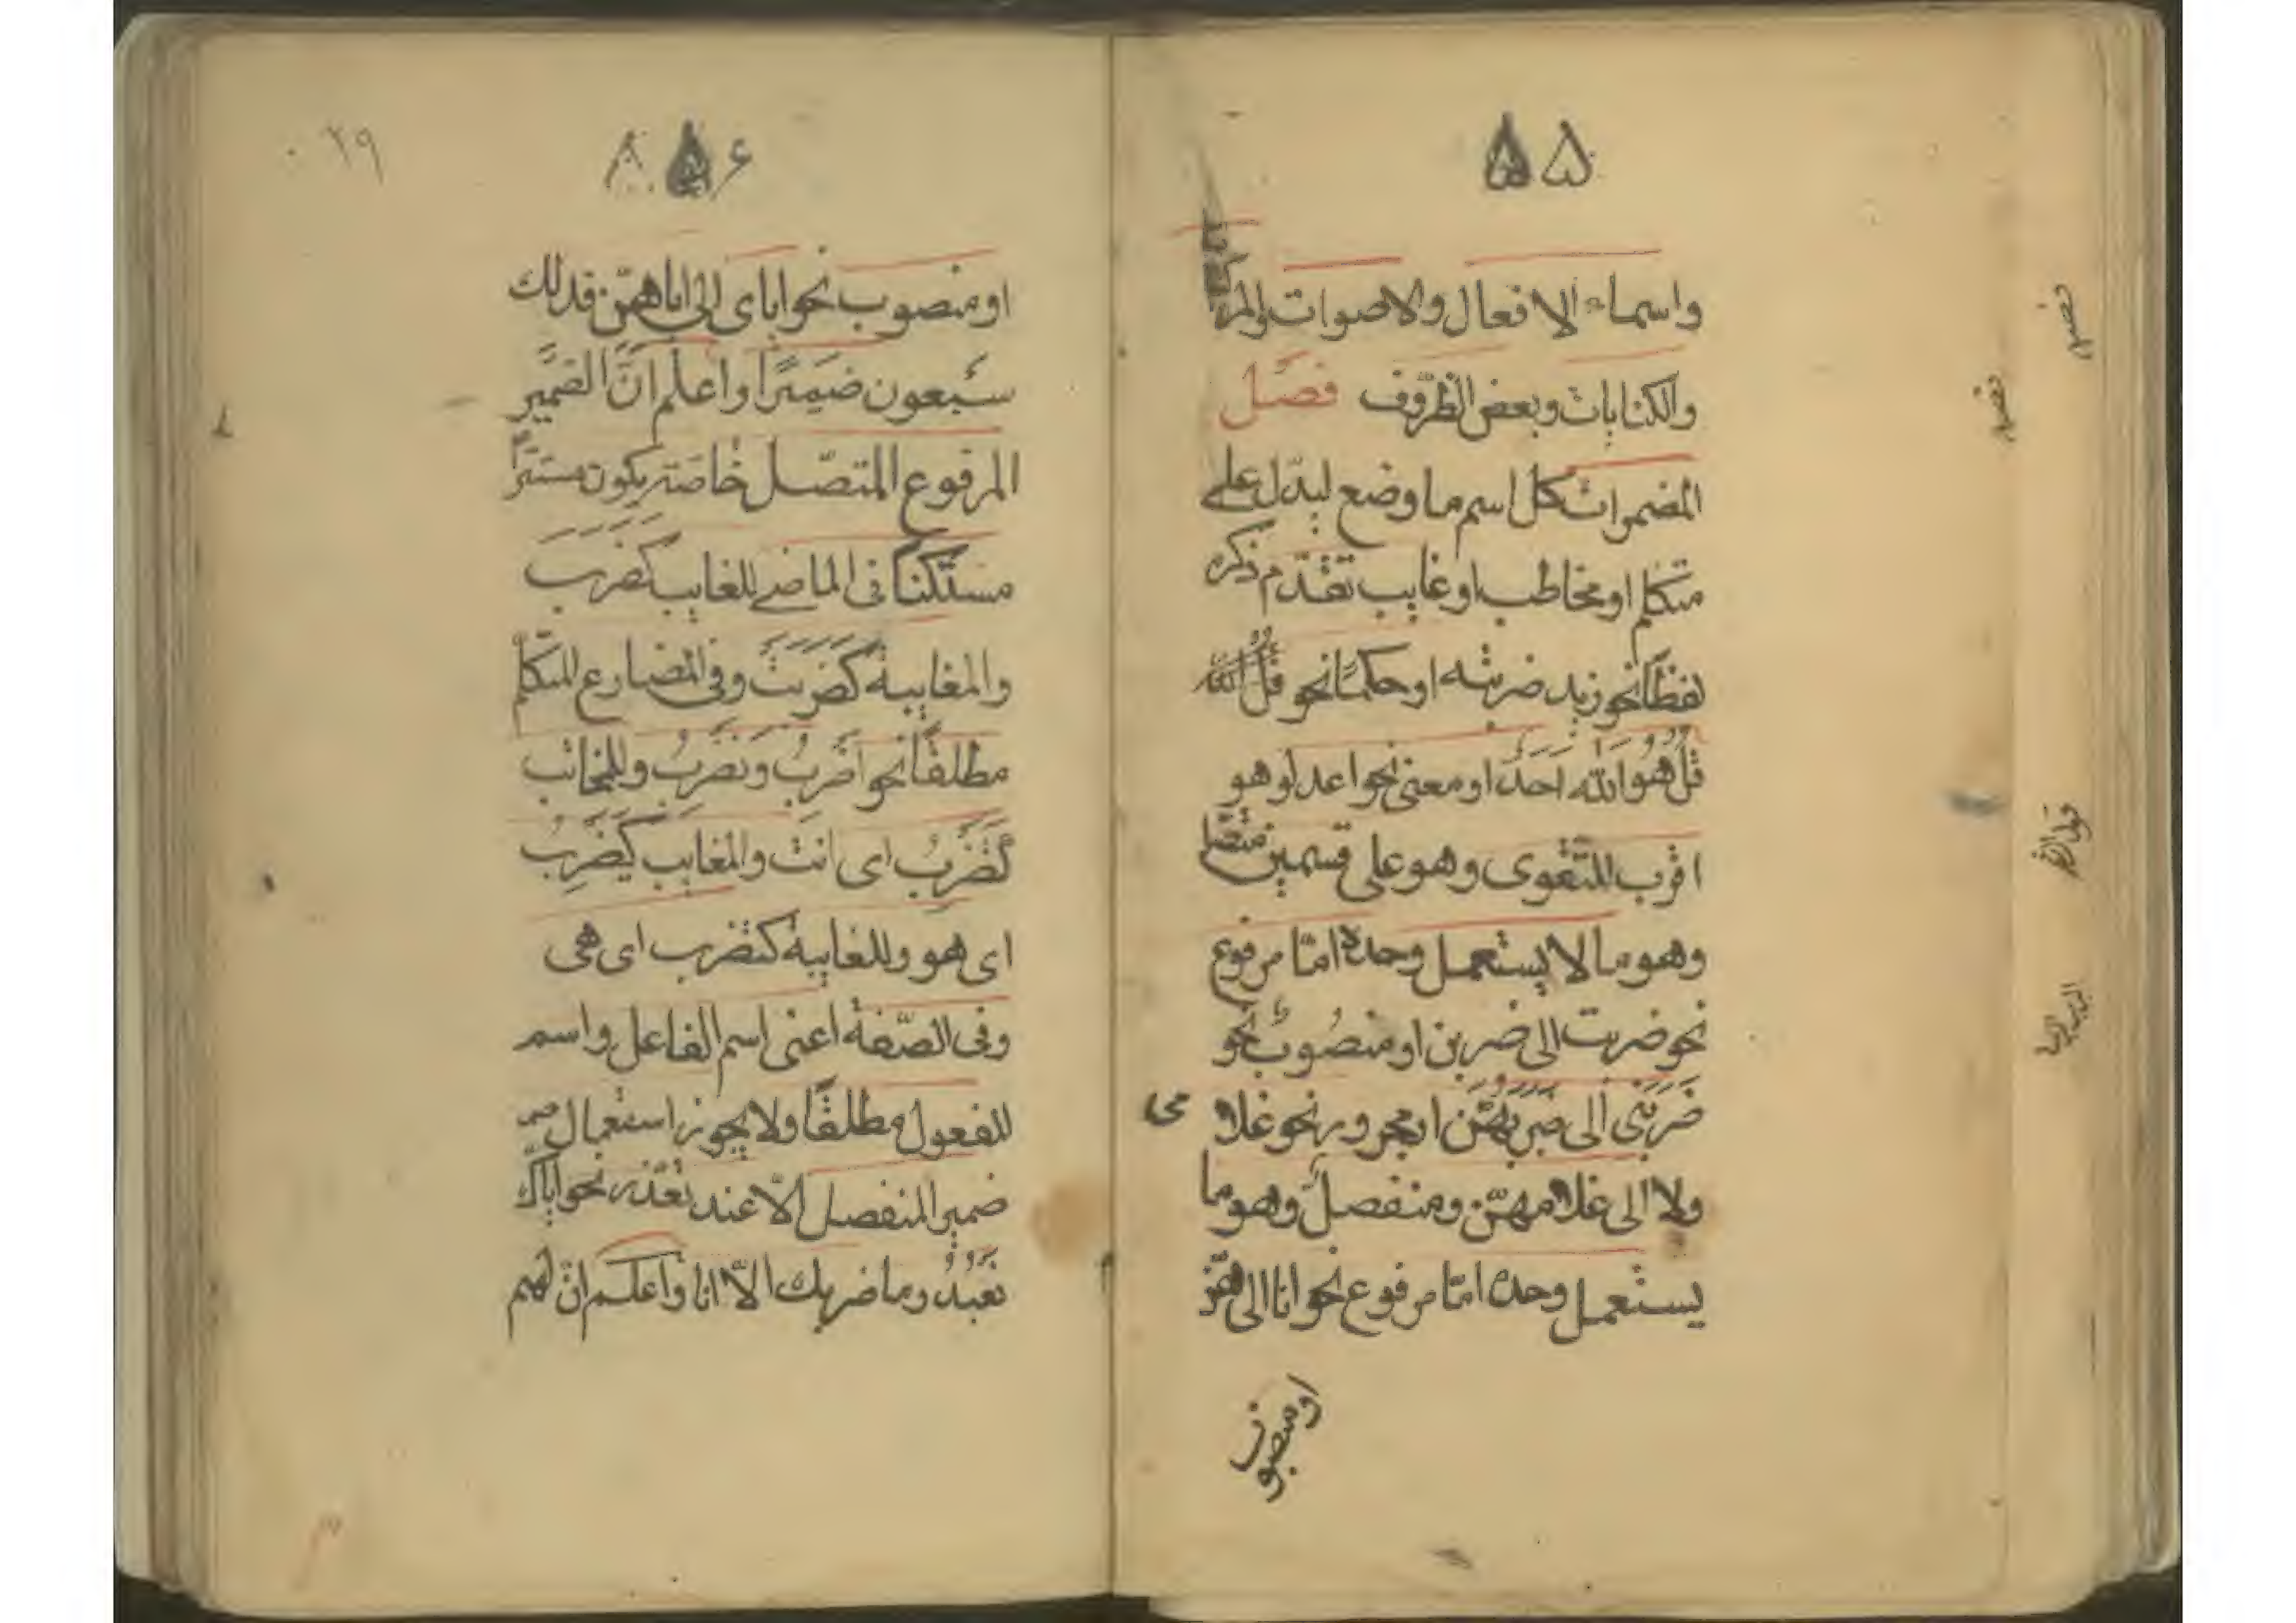 ۵۵
واسماء الافعال والاصوات والمركبات
والكنايات وبعض الظروف فصل
المضمرات كل اسم ما وضع ليدل على
متكلم او مخاطب او غايب تقدم ذكره
لفظًا نحو زيد ضربته او حكمًا نحو
قُلْ هُوَ اللهُ اَحَدٌ او معنى نحو اعدلو هو
اقرب للتقوى وهو على قسمين متصل
وهو ما لا يستعمل وحده امّا مرفوع
نحو ضربت الى ضربن او منصوب نحو
ضَرَبَنى الى ضَرَبَهُنَّ او مجرور نحو غلامى
ولا الى غلامهنّ ومنفصل وهو ما
يستعمل وحده امّا مرفوع نحو انا الى هنّ
او منصوب
۵۶
۲۹
او منصوب نحو اياى الى اياهنّ فذلك
سبعون ضميرًا واعلم انّ الضمير
المرفوع المتصّل خاصّة يكون مستترًا
مستكنًا فى الماضى للغايب كَضَرَبَ
والمغايبة كَضَرَبَتْ وفى المضارع للمتكلّم
مطلقًا نحو اَضْرِبُ ونَضْرِبُ وللمخاطب
كَتَضْرِبُ اى انت والمغايب كَيَضْرِبُ
اى هو وللغايبة كتضرب اى هى
وفى الصّفة اعنى اسم الفاعل واسم
المفعول مطلقًا ولا يجوز استعمال
ضمير المنفصل الّا عند تعذّر نحو ايّاك
نعبدُ وما ضربك الّا انا واعلم انّ لهم